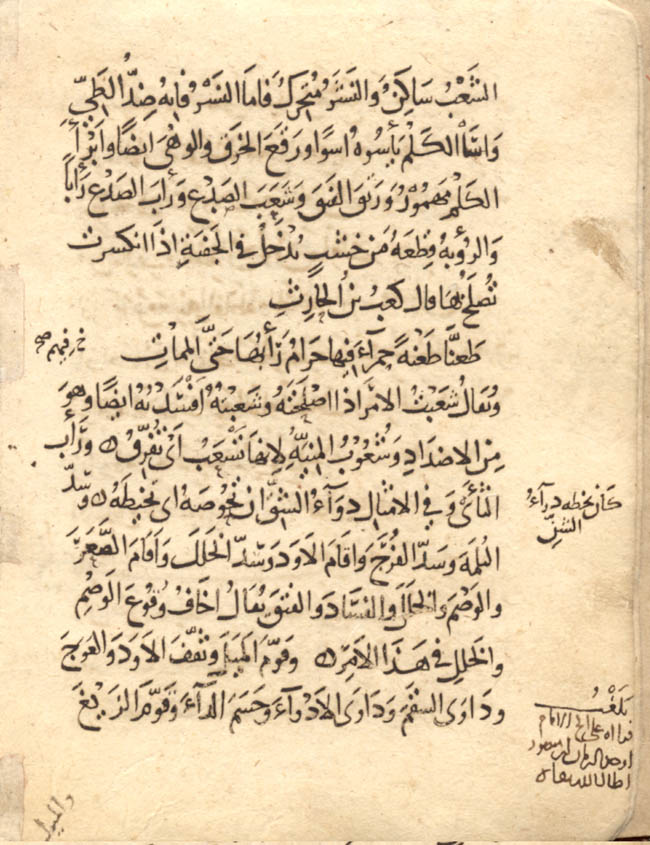 الشَّعْبُ سَاكِنٌ وَالنَّشَرُ مُتَحَرِّكٌ فَامَا النَّشْرُ فَانِهُ ضِدُّ الطَّيِّ
وَاسَا الكَلْمَ يَأْسُوهُ اسْوًا وَرَقَعَ الخَرْقَ وَالوَهْىَ ايضًا وابْرَأَ
الكَلْمَ مَهمُوزٌ وَرَتَقَ الفَتقَ وَشَعَبَ الصَدْعَ وَرَأَبَ الصَدْعَ رَأْبًا
وَالرُؤبَةُ قِطعَةٌ مِن خَشَبٍ تُدْخَلُ فِى الجَفنَةِ اِذَا انكَسرتْ
تُصْلَحُ بِهَا قال كعبُ بنُ الحَارِثِ
طَعنَّا طَعْنَةً حَمرآءَ فِيهَا حَرَامٌ رَأْبُهَا حَتَّى المَمَاتِ
خ فيهم صح
وَيُقَالُ شَعَبْتُ الامْرَ اِذَا اصْلَحْتَهُ وَشَعَبْتُهُ افْسَدْتُهُ ايضًا وهوَ
مِنَ الاضْدَادِ وَشَعُوبُ المنِيَّةُ لِانهَا تَشْعَبُ اَىْ تُفَرِّقُ ه وَرَأَبَ
الثَأَىٰ وَفِي الامْثَالِ دَوَآءُ الشَقِّ ان تَحُوصَهُ اى تَخِيطَهُ ه وَسَدَّ
كان بخطه دوآءُ
الشقِّ
الثلمَةَ وَسَدَّ الفُرَجَ وَاقَامَ الاَوَدَ وَسَدَّ الخَلَلَ وَاَقَامَ الصَّعَرَ
والوَصْمَ والخَلَلَ والفَسَادَ وَالفتقَ يُقَالُ اخَافُ وُقُوعَ الوَصْمِ
وَالخَلَلِ فى هَذَا الاَمرِ ه وَقوَّمَ المَيَلَ وَثَقَّفَ الاَوَدَ وَالعِوَجَ
وَدَاوَى السقَمَ وَدَاوَى الاَدْوآءَ وَحَسَمَ الدَّآءَ وَقَوَّمَ الزَيْغَ
بَلَغْتُ
قراه على الامام
اطال الله بقاه
والميل